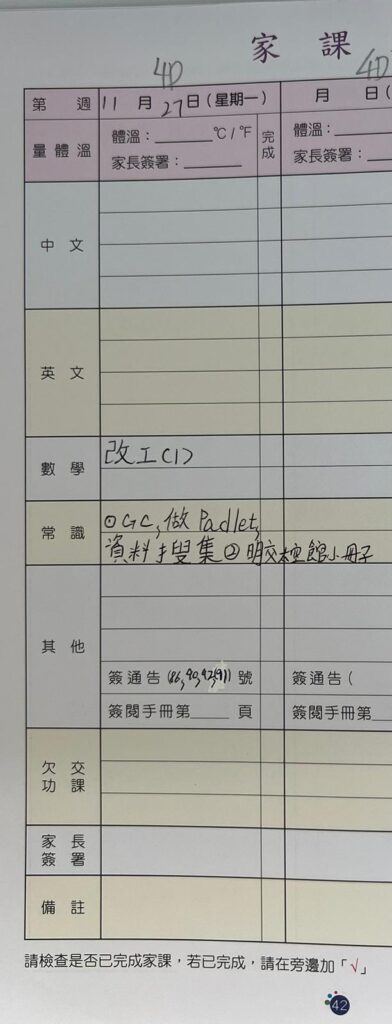 家 課
4D
4D
第 週 11 月 27 日 (星期一) 月 日 (
量體溫 體溫：______ °C / °F 完成 體溫：
家長簽署：______ 家長簽署：
中 文
英 文
數 學 改工(1)
常 識 ①GC, 做 Padlet,
資料搜集 ② 明交太空館小冊子
其 他
簽通告 (86,90,92,91) 號 簽通告 (
簽閱手冊第____ 頁 簽閱手冊第
欠 交
功 課
家 長
簽 署
備 註
請檢查是否已完成家課，若已完成，請在旁邊加「√」
42